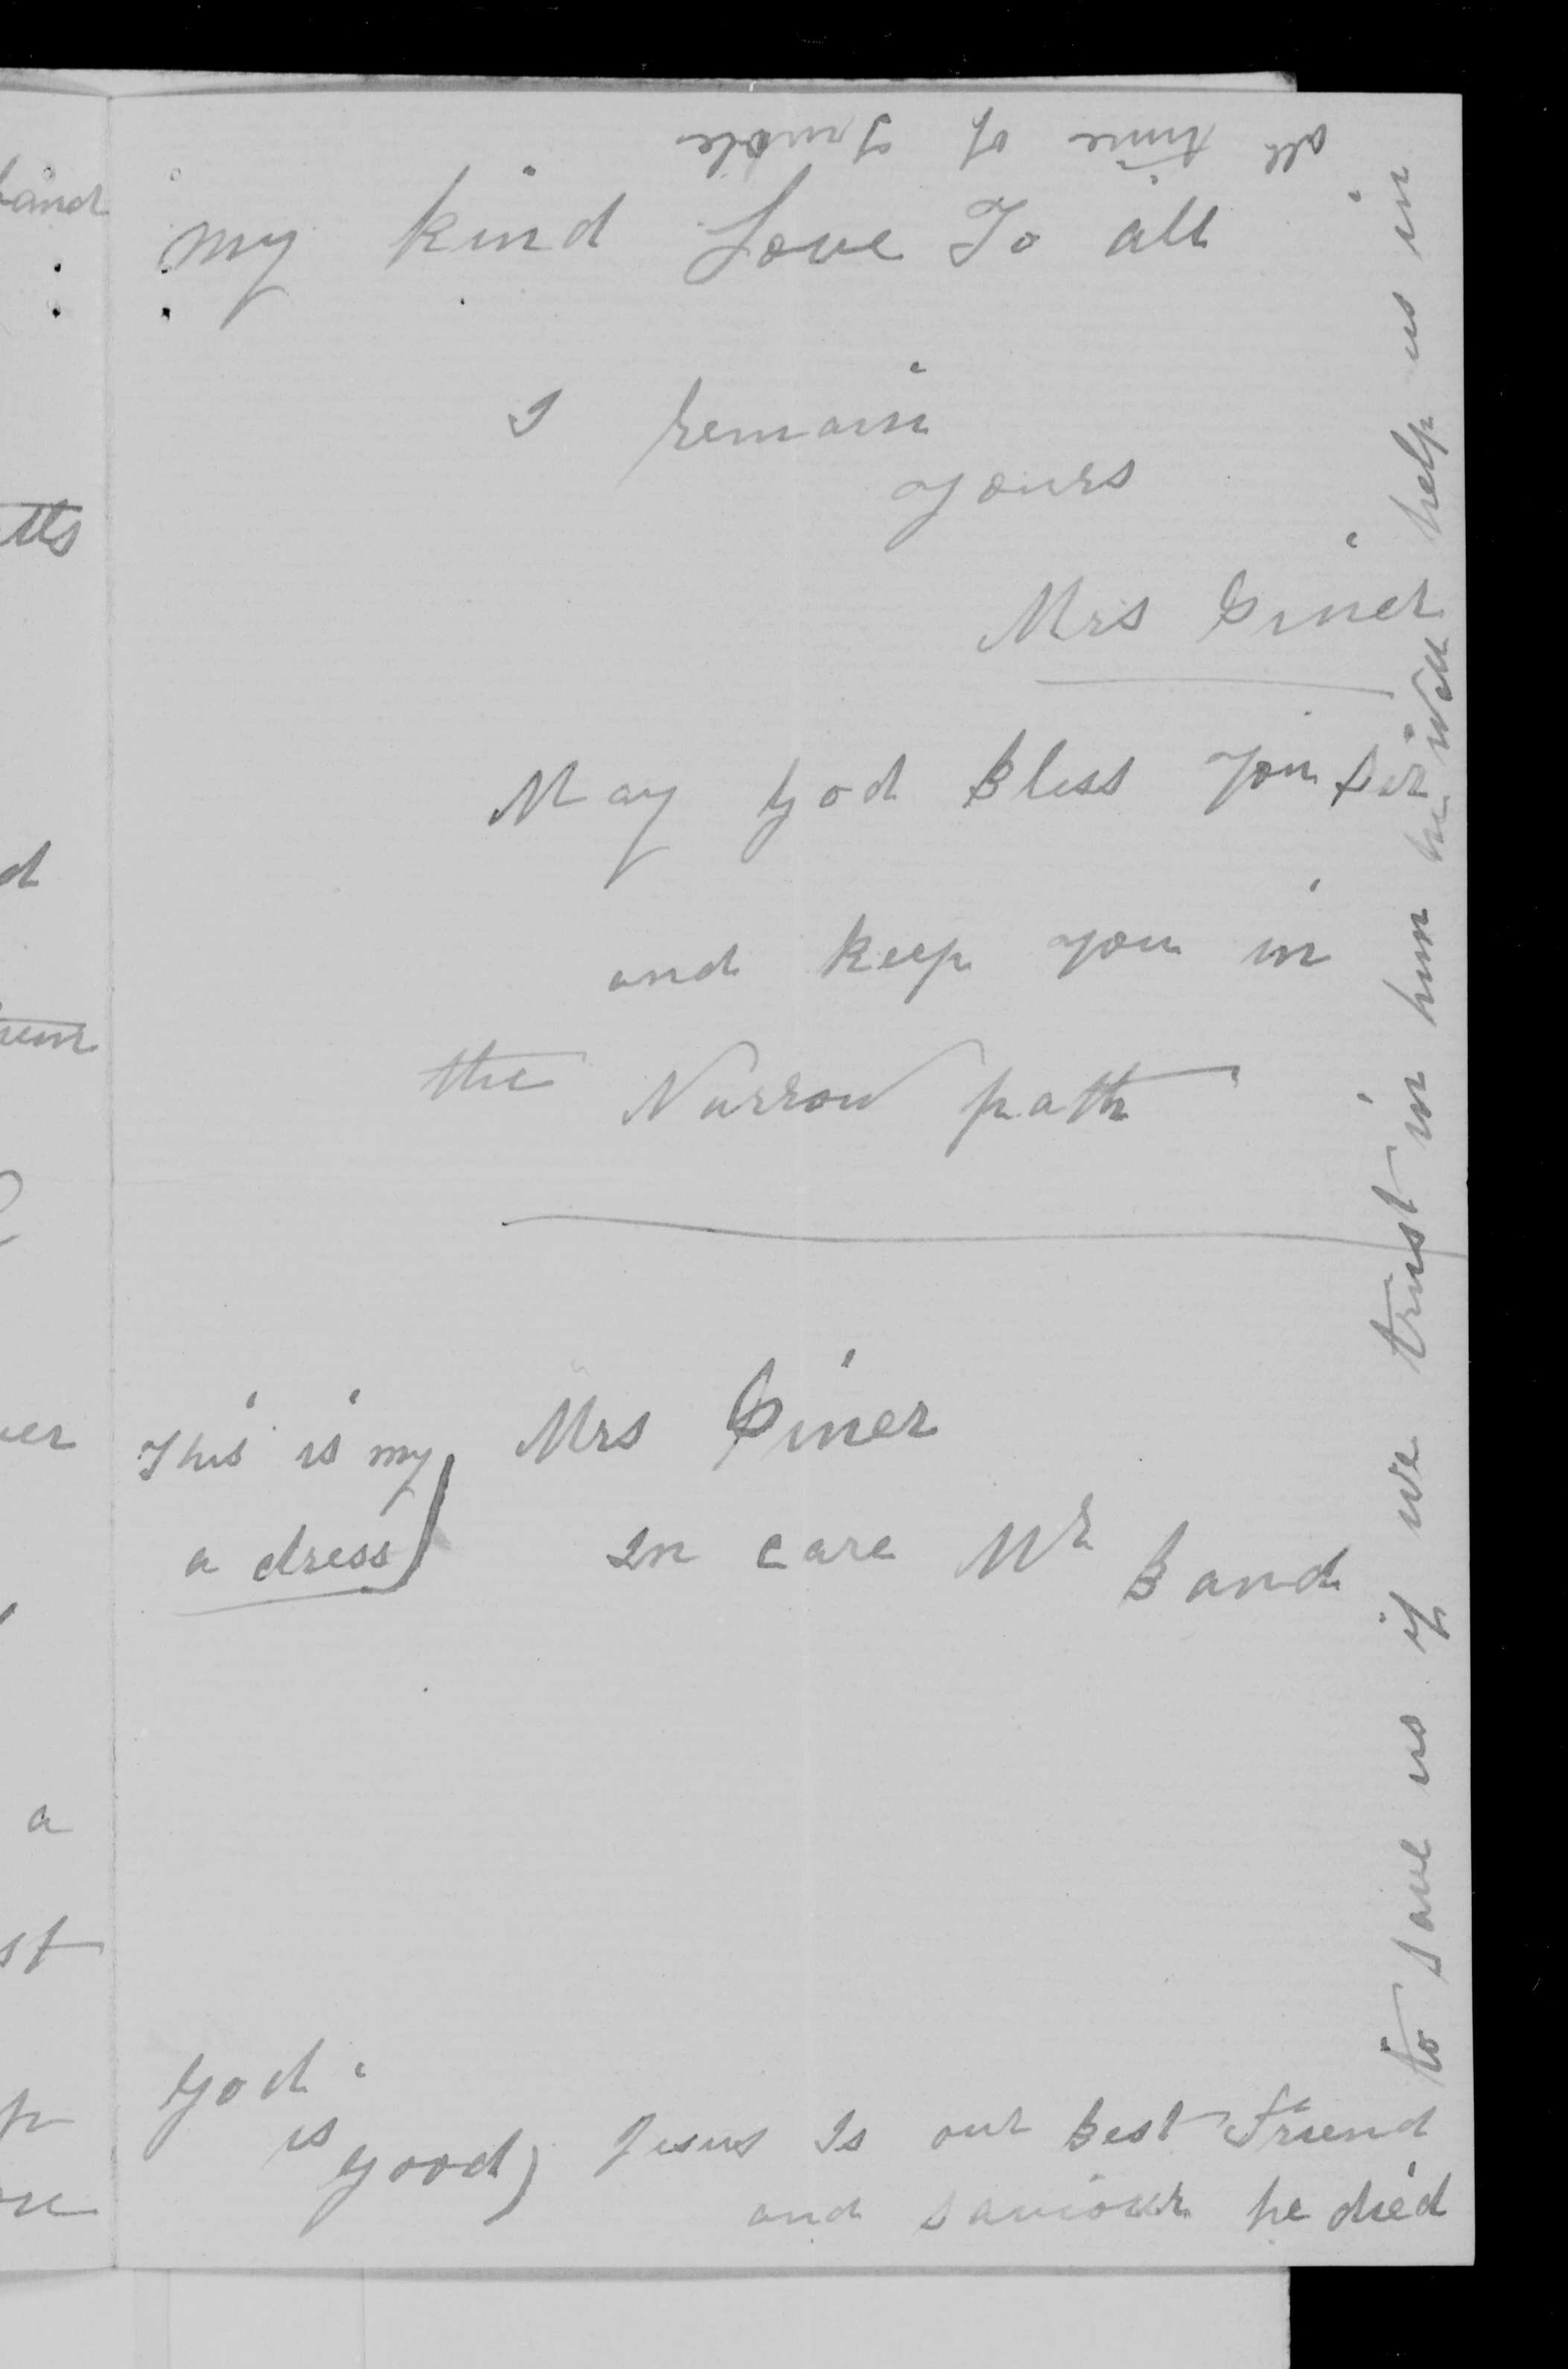 my kind Love To all
I remain
yours
Mrs Piner
May God Bless you Sir
and keep you in
the Narrow path
This is my
a dress)
Mrs Piner
In care Mr Band
God
is
good)
Jesus Is our Best Friend
and saviour he died
to save us if we trust in him he will help us in
all time of Truble
band
tts
d
er
a
st